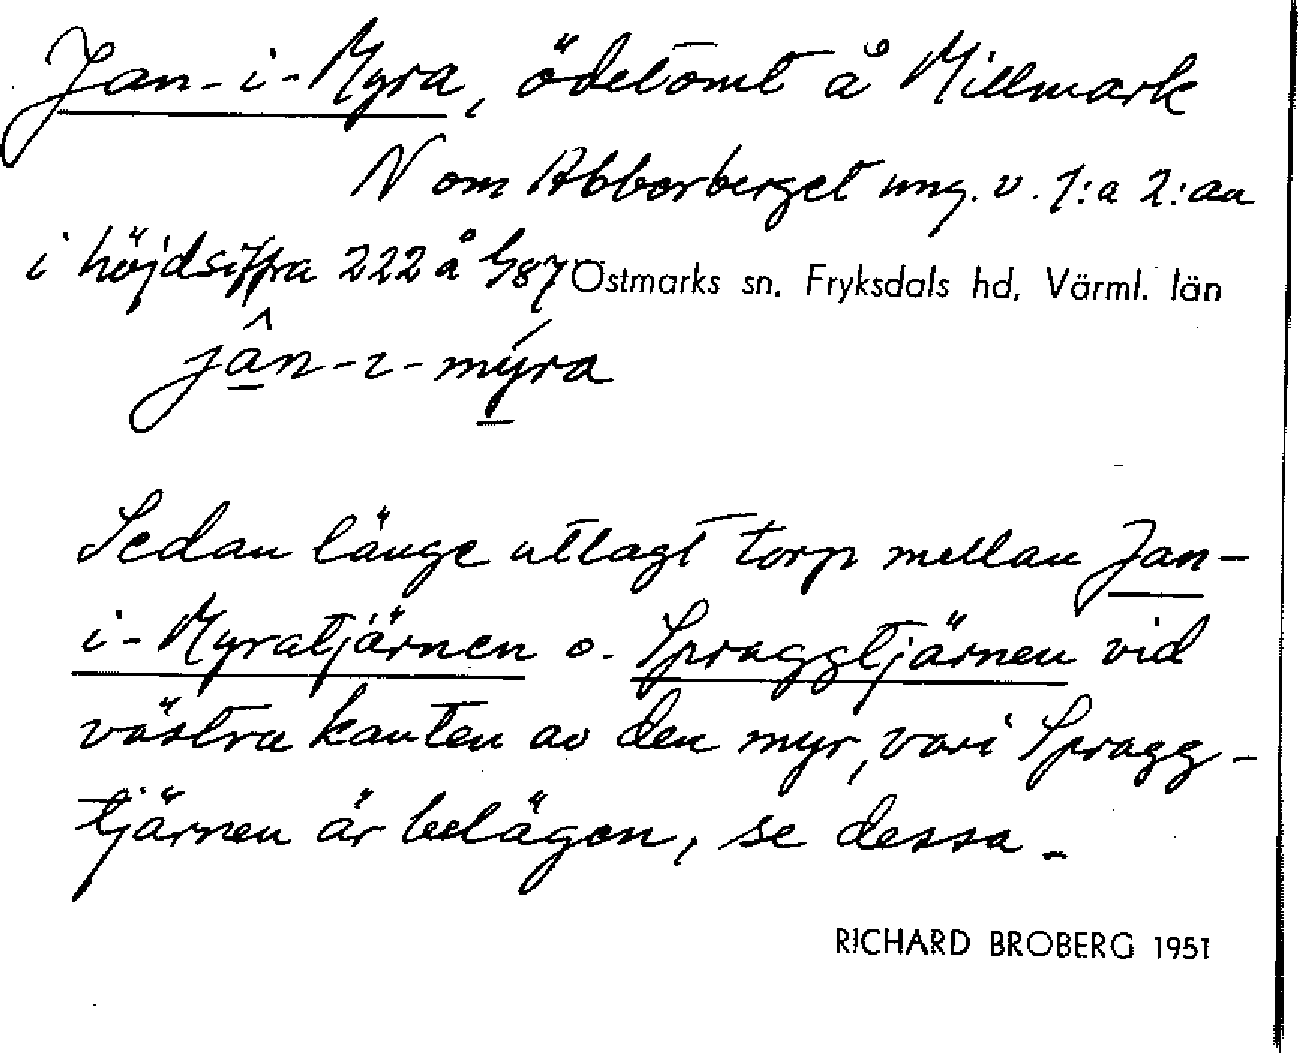 Jan-i-Myra, ödetomt å Millmark
N om Abborberget ung. v. 1:a 2:aa
i höjdsiffra 222 å G87 Östmarks sn. Fryksdals hd, Värml. län
jân-ɩ-mýra
Sedan länge utlagt torp mellan Jan-
i-Myratjärnen o. Spraggtjärnen vid
västra kanten av den myr, vari Spragg-
tjärnen är belägen, se dessa.
RICHARD BROBERG 1951